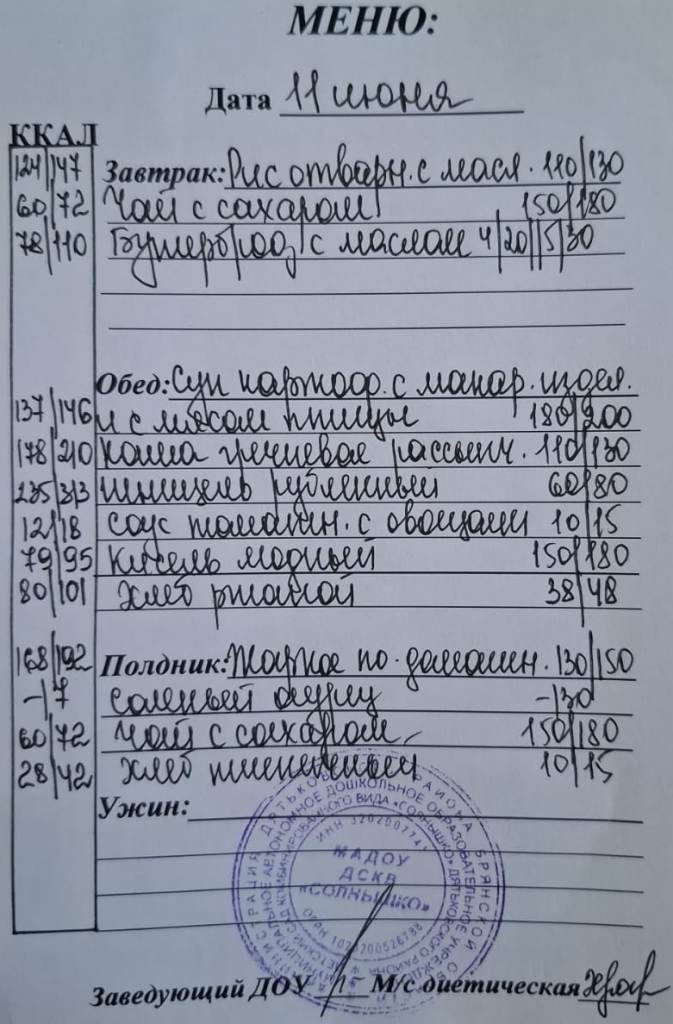 МЕНЮ:
Дата 11 июня
ККАЛ
124/147 Завтрак: Рис отварн. с масл. 110/130
60/72 Чай с сахаром 150/180
78/110 Бутерброд с маслом 4/20//5/30
Обед: Суп картоф. с макар. издел.
137/146 и с мясом птицы 180/200
178/210 каша гречневая рассыпч. 110/130
235/313 шницель рубленный 60/80
12/18 соус томатн. с овощами 10/15
79/95 кисель модный 150/180
80/101 хлеб ржаной 38/48
168/192 Полдник: Жаркое по-домашн. 130/150
-/7 соленый огурец -/30
60/72 Чай с сахаром 150/180
28/42 хлеб пшеничный 10/15
Ужин:
МАДОУ
ДСКВ
«СОЛНЫШКО»
Заведующий ДОУ М/с диетическая